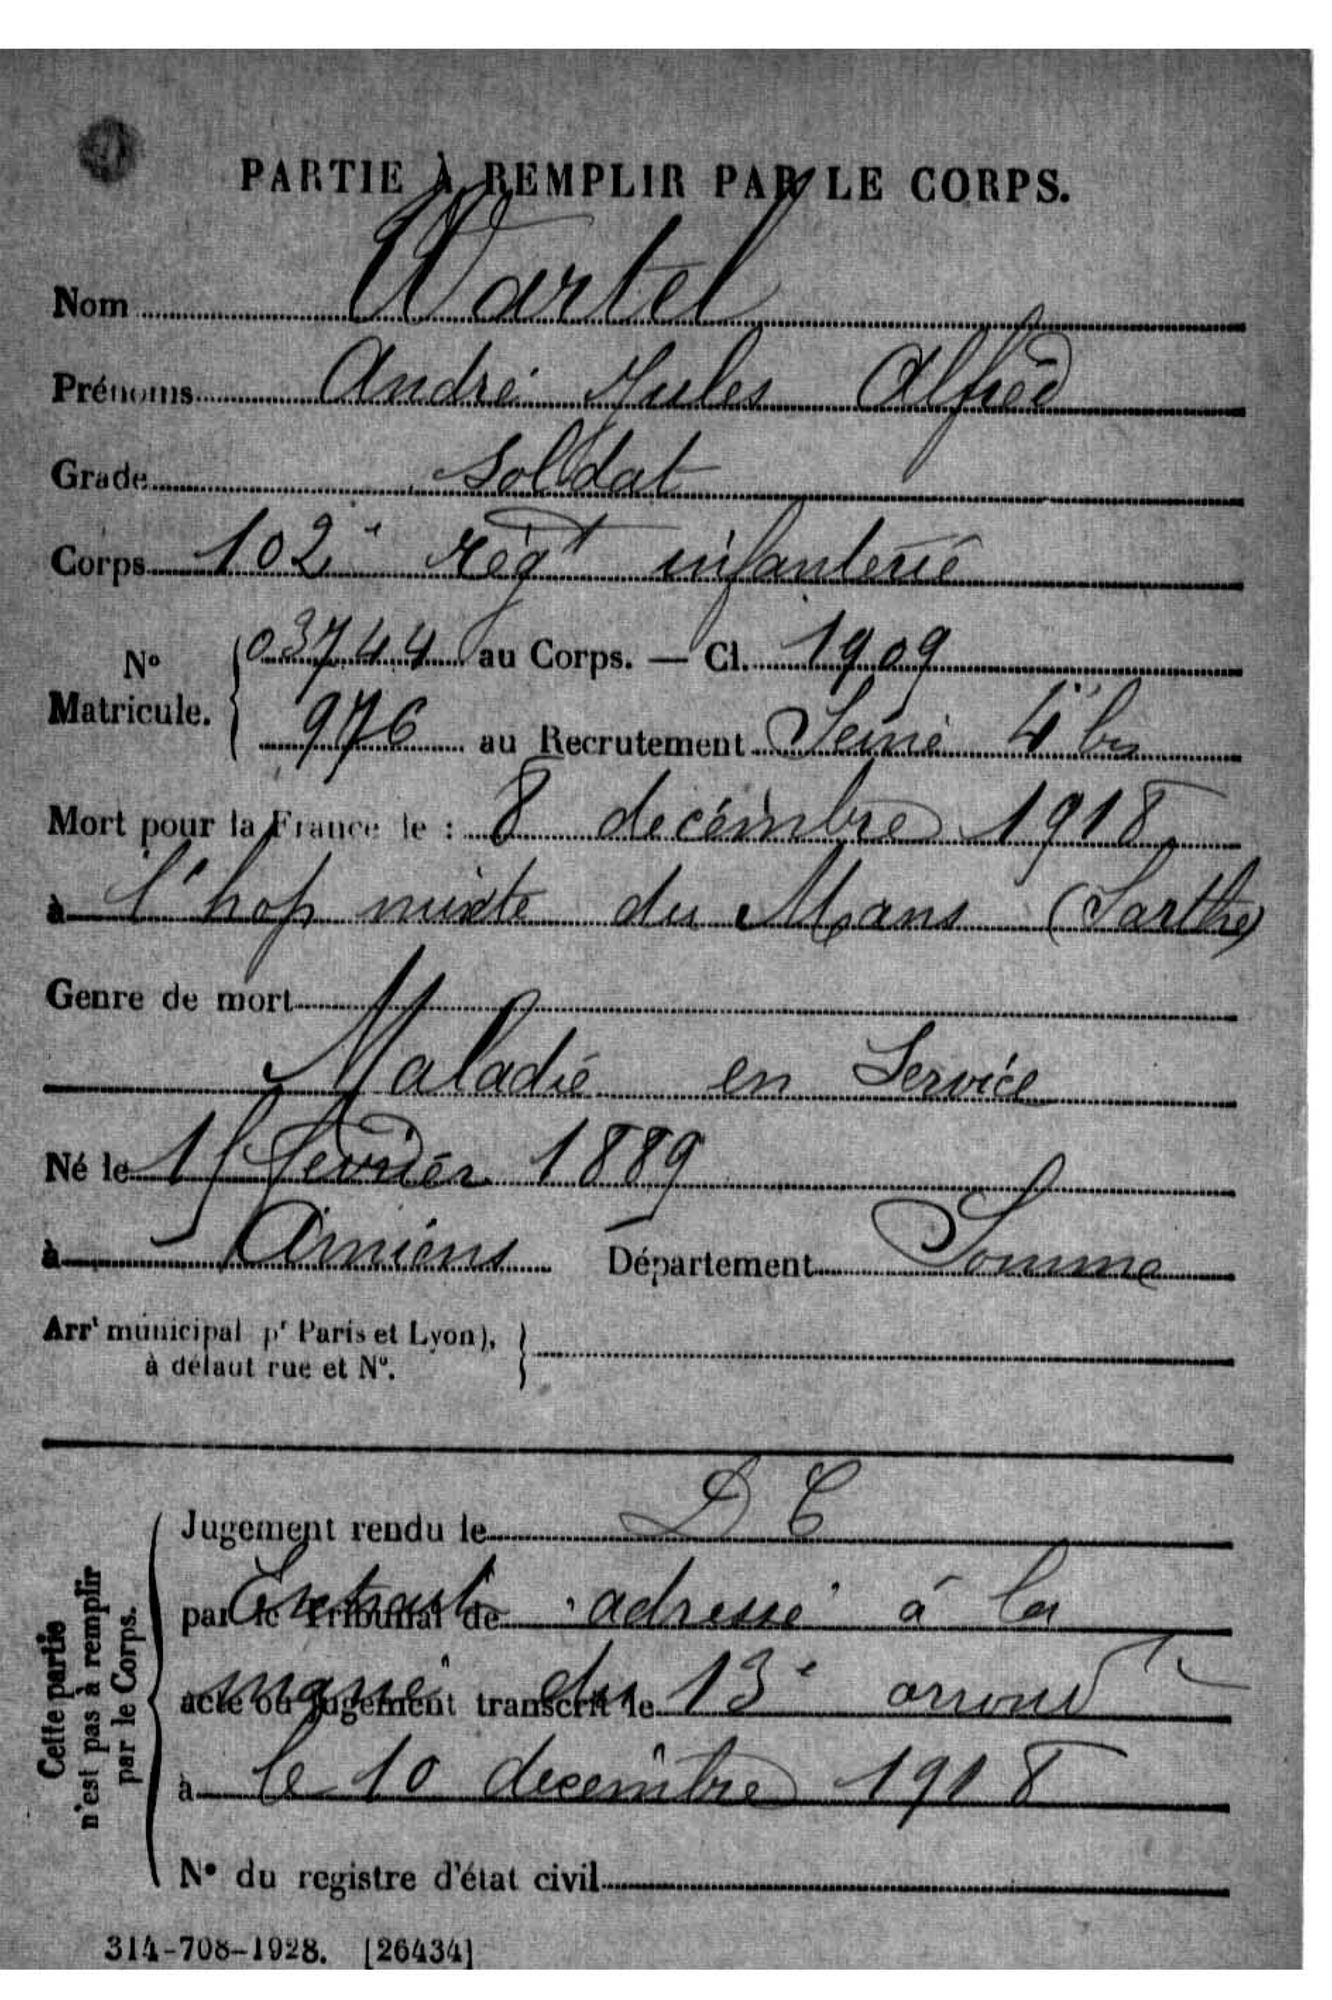 PARTIE À REMPLIR PAR LE CORPS.
Nom Wartel
Prénoms André Jules Alfred
Grade Soldat
Corps 102e Régt infanterie
No Matricule. { 03744 au Corps. — Cl. 1909
976 au Recrutement Seine 4e bu
Mort pour la France le : 8 décembre 1918
à l'hop mixte du Mans (Sarthe)
Genre de mort
Maladie en Service
Né le 1 février 1889
à Amiens Département Somme
Arrt municipal pr Paris et Lyon),
à défaut rue et No.
Jugement rendu le D C
par le Tribunal de Extrait adressé à la
acte ou jugement transcrit le mairie du 13e arrond
à le 10 décembre 1918
No du registre d'état civil
Cette partie
n'est pas à remplir
par le Corps.
314-708-1928. [26434]